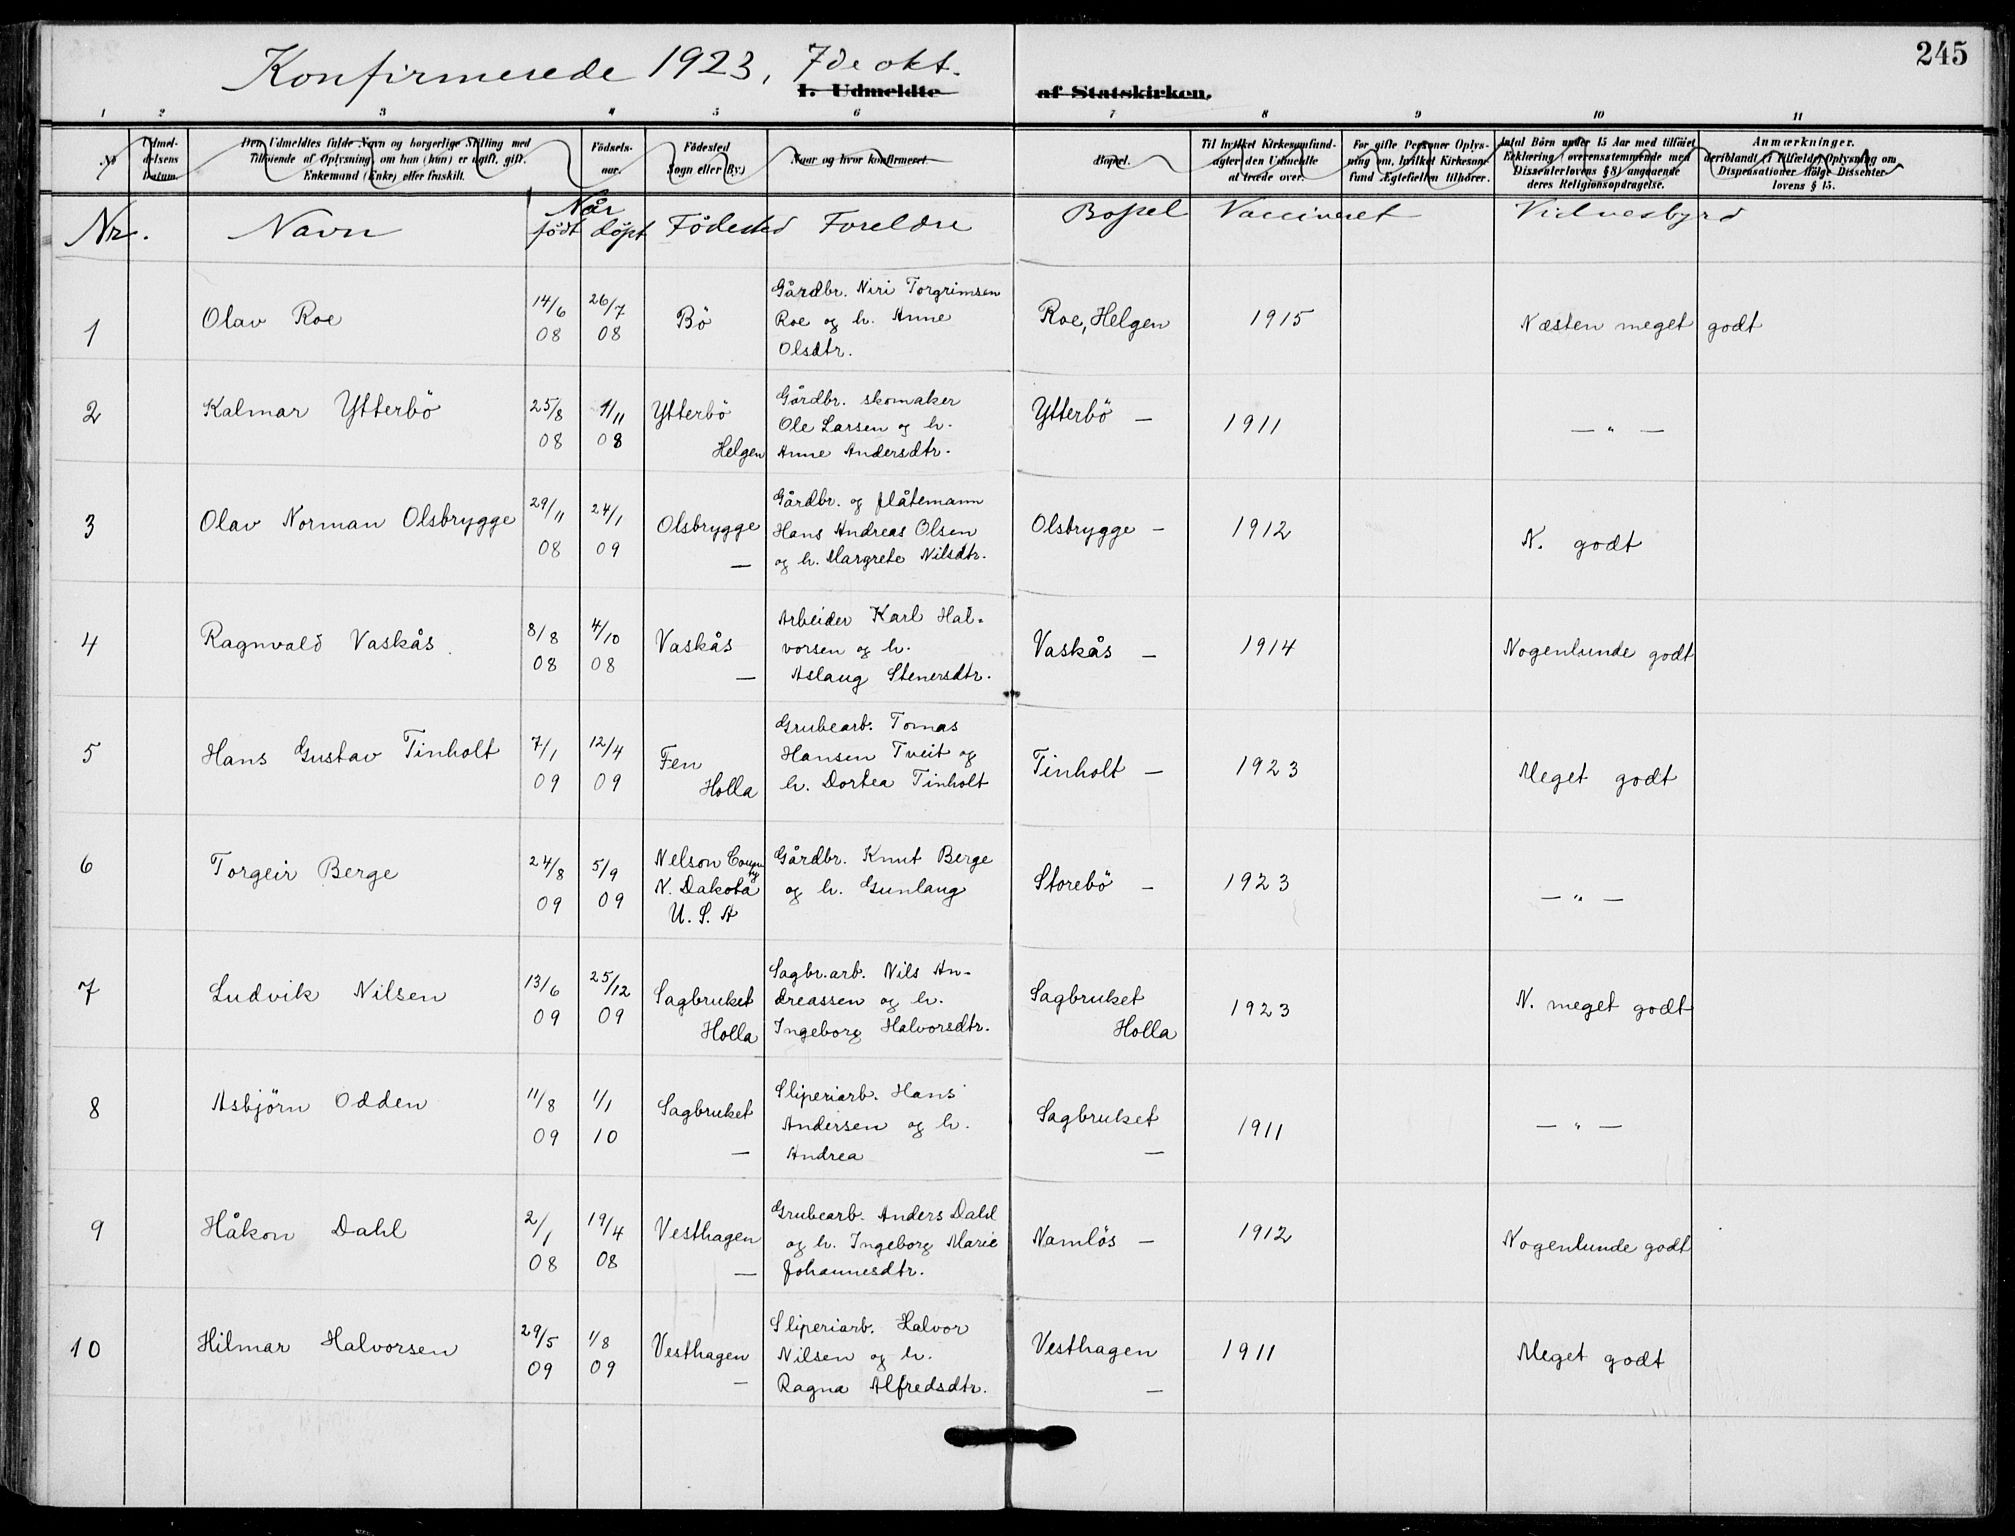 245
Konfirmerede 1923, 7de okt.
I. Udmeldte af Statskirken.
1 2 3 4 5 6 7 8 9 10 11
No
Udmel-
delsens
Datum.
Den Udmeldtes fulde Navn og borgerlige Stilling med
Tilføiende af Oplysning, om han (hun) er ugift, gift.
Enkemand (Enke) eller fraskilt.
Fødsels-
aar.
Fødested
Sogn eller By.)
Naar og hvor konfirmeret.
Bopæl.
Til hvilket Kirkesamfund-
agter den Udmeldte
at træde over.
For gifte Personer Oplys-
ning om, hvilket Kirkesam-
fund Ægtefællen tilhører.
Antal Børn under 15 Aar med tilføiet
Erklæring (overensstemmende med
Dissenterlovens § 8) angaaende
deres Religionsopdragelse.
Anmærkninger.
deriblandt (i Tilfælde) Oplysning om
Dispensationer ifølge Dissenter
lovens § 15.
Nr. Navn Når født döpt Födested Foreldre Bopel Vaccineret Vidnesbyrd
1 Olav Roe 14/6 08 26/7 08 Bö
Gårdbr. Niri Torgrimsen
Roe og h. Anne
Olsdtr.
Roe, Helgen 1915 Næsten meget godt
2 Kalmar Ytterbö 25/8 08 1/11 08 Ytterbö
Helgen
Gårdbr. skomaker
Ole Larsen og h.
Anne Andersdtr.
Ytterbö — 1911 — " —
3 Olav Norman Olsbrygge 29/11 08 24/1 09 Olsbrygge
—
Gårdbr. og flåtemann
Hans Andreas Olsen
og h. Margrete Nilsdtr.
Olsbrygge — 1912 N. godt
4 Ragnvald Vaskås 8/8 08 4/10 08 Vaskås
—
Arbeider Karl Hal-
vorsen og h.
Aslaug Stenersdtr.
Vaskås — 1914 Nogenlunde godt
5 Hans Gustav Tinholt 7/1 09 12/4 09 Fen
Holla
Grubearb. Tomas
Hansen Tveit og
h. Dortea Tinholt
Tinholt — 1923 Meget godt
6 Torgeir Berge 24/8 09 5/9 09 Nelson
N. Dakota
U. S. A
Gårdbr. Knut Berge
og h. Gunlaug
Storebö — 1923 — " —
7 Ludvik Nilsen 13/6 09 25/12 09 Sagbruket
Holla
Sagbr.arb. Nils An-
dreassen og h.
Ingeborg Halvorsdtr.
Sagbruket
Holla
1923 N. meget godt
8 Asbjörn Odden 11/8 09 1/1 10 Sagbruket
—
Sliperiarb. Hans
Andersen og h.
Andrea
Sagbruket
—
1911 — " —
9 Håkon Dahl 2/1 08 19/4 08 Vesthagen
—
Grubearb. Anders Dahl
og h. Ingeborg Marie
Johannesdtr.
Namlös — 1912 Nogenlunde godt
10 Hilmar Halvorsen 29/5 09 1/8 09 Vesthagen
—
Sliperiarb. Halvor
Nilsen og h.
Ragna Alfredsdtr.
Vesthagen
—
1911 Meget godt